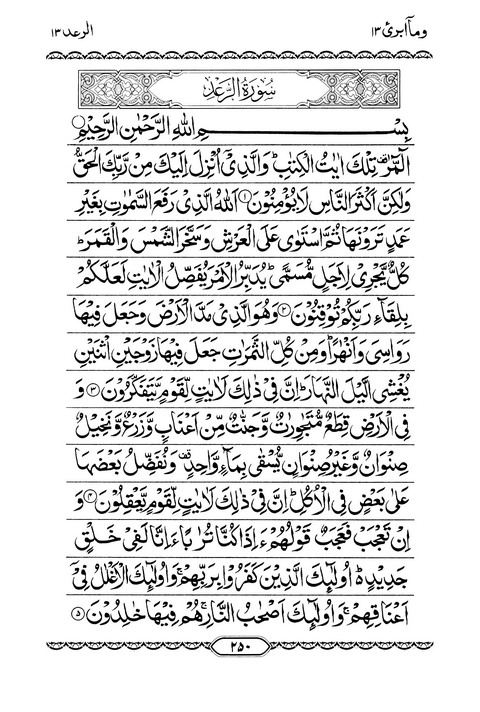 وما ابرئ ١٣
الرعد ١٣
سُوْرَةُ الرَّعْدِ
بِسْمِ اللهِ الرَّحْمٰنِ الرَّحِيْمِ
الٓمّٓرٰ ۚ تِلْكَ اٰيٰتُ الْكِتٰبِ ؕ وَالَّذِيْۤ اُنْزِلَ اِلَيْكَ مِنْ رَّبِّكَ الْحَقُّ
وَلٰكِنَّ اَكْثَرَ النَّاسِ لَا يُؤْمِنُوْنَ ۝۱ اَللّٰهُ الَّذِيْ رَفَعَ السَّمٰوٰتِ بِغَيْرِ
عَمَدٍ تَرَوْنَهَا ثُمَّ اسْتَوٰى عَلَى الْعَرْشِ وَسَخَّرَ الشَّمْسَ وَالْقَمَرَ ؕ
كُلٌّ يَّجْرِيْ لِاَجَلٍ مُّسَمًّى ؕ يُدَبِّرُ الْاَمْرَ يُفَصِّلُ الْاٰيٰتِ لَعَلَّكُمْ
بِلِقَآءِ رَبِّكُمْ تُوْقِنُوْنَ ۝۲ وَهُوَ الَّذِيْ مَدَّ الْاَرْضَ وَجَعَلَ فِيْهَا
رَوَاسِيَ وَاَنْهٰرًا ؕ وَمِنْ كُلِّ الثَّمَرٰتِ جَعَلَ فِيْهَا زَوْجَيْنِ اثْنَيْنِ
يُغْشِي الَّيْلَ النَّهَارَ ؕ اِنَّ فِيْ ذٰلِكَ لَاٰيٰتٍ لِّقَوْمٍ يَّتَفَكَّرُوْنَ ۝۳ وَ
فِي الْاَرْضِ قِطَعٌ مُّتَجٰوِرٰتٌ وَّجَنّٰتٌ مِّنْ اَعْنَابٍ وَّزَرْعٌ وَّنَخِيْلٌ
صِنْوَانٌ وَّغَيْرُ صِنْوَانٍ يُّسْقٰى بِمَآءٍ وَّاحِدٍ ۫ وَنُفَضِّلُ بَعْضَهَا
عَلٰى بَعْضٍ فِي الْاُكُلِ ؕ اِنَّ فِيْ ذٰلِكَ لَاٰيٰتٍ لِّقَوْمٍ يَّعْقِلُوْنَ ۝۴ وَ
اِنْ تَعْجَبْ فَعَجَبٌ قَوْلُهُمْ ءَاِذَا كُنَّا تُرٰبًا ءَاِنَّا لَفِيْ خَلْقٍ
جَدِيْدٍ ؕ اُولٰٓئِكَ الَّذِيْنَ كَفَرُوْا بِرَبِّهِمْ ۚ وَاُولٰٓئِكَ الْاَغْلٰلُ فِيْۤ
اَعْنَاقِهِمْ ۚ وَاُولٰٓئِكَ اَصْحٰبُ النَّارِ ۚ هُمْ فِيْهَا خٰلِدُوْنَ ۝۵
۲۵۰